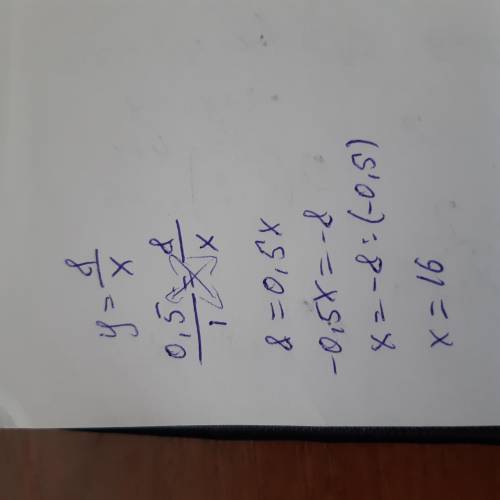 y = 8/x
0,5/1 = 8/x
8 = 0,5x
-0,5x = -8
x = -8 : (-0,5)
x = 16